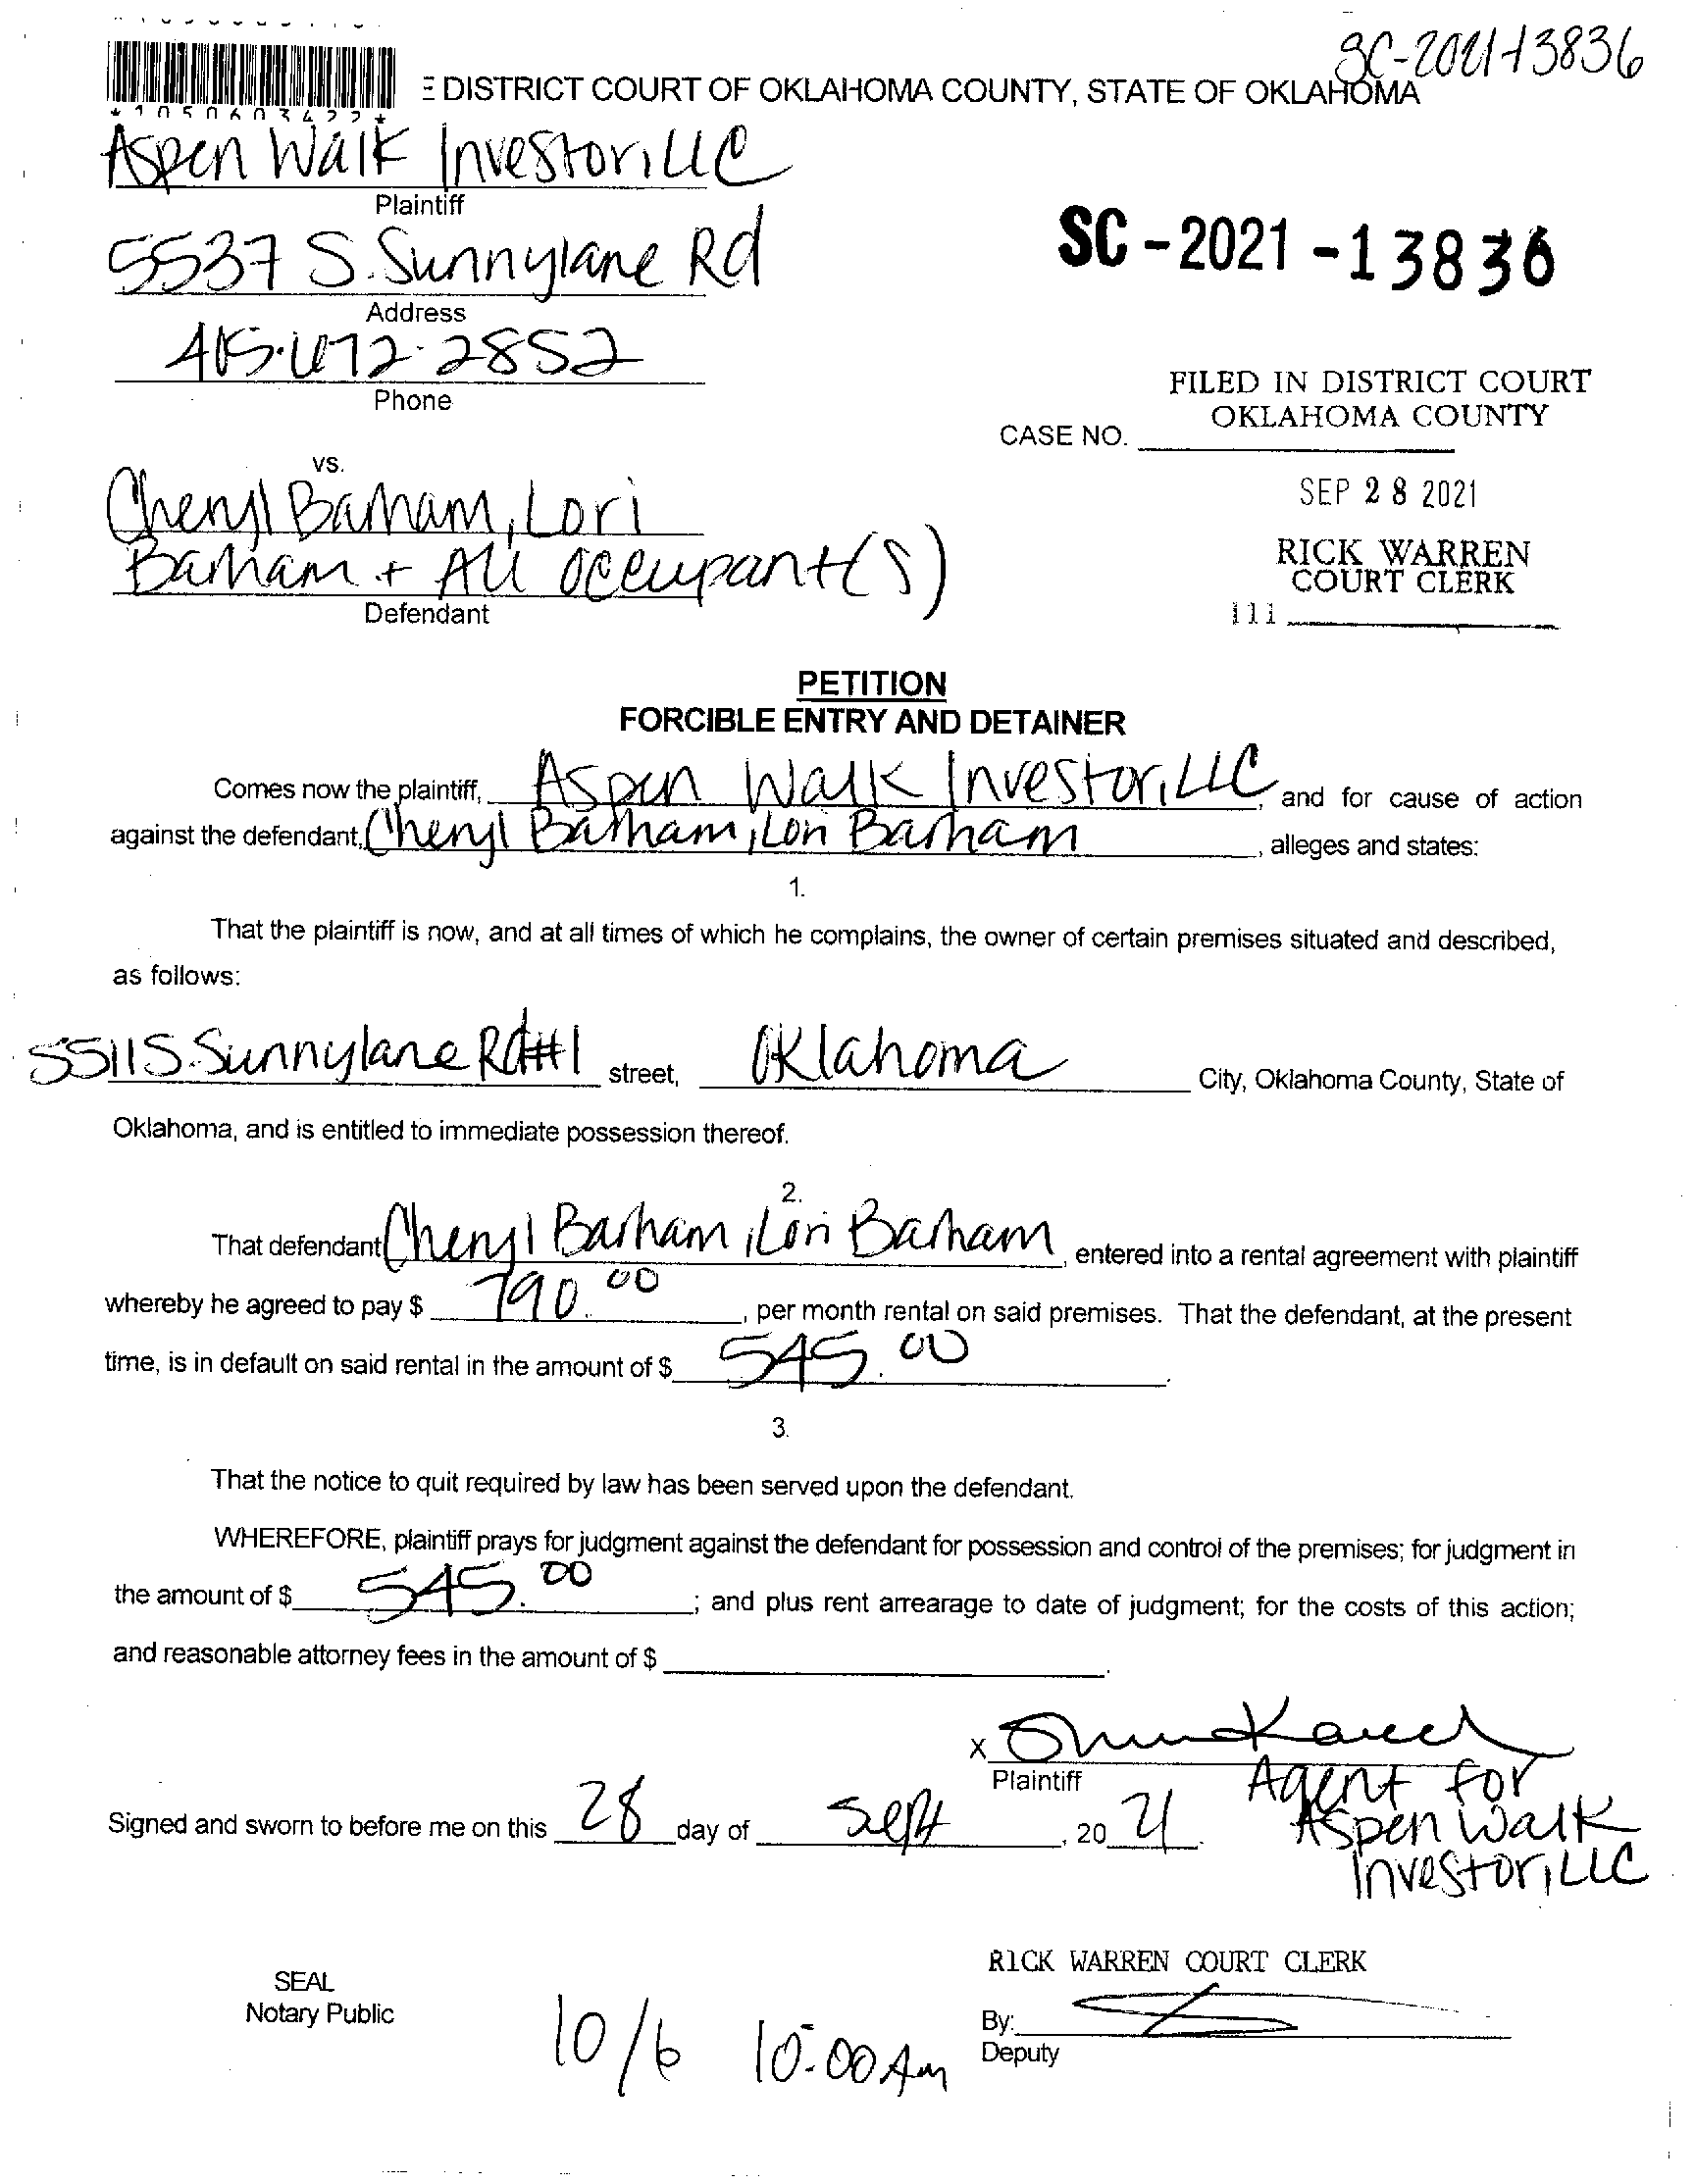 SC-2021-13836
E DISTRICT COURT OF OKLAHOMA COUNTY, STATE OF OKLAHOMA
*1050603422*
Aspen Walk Investor, LLC
Plaintiff
5537 S. Sunnylane Rd
Address
SC-2021-13836
405.672.2852
Phone
FILED IN DISTRICT COURT
OKLAHOMA COUNTY
CASE NO.
vs.
SEP 28 2021
Cheryl Barham, Lori
Barham + All occupant(s)
Defendant
RICK WARREN
COURT CLERK
111
PETITION
FORCIBLE ENTRY AND DETAINER
Comes now the plaintiff, Aspen Walk Investor, LLC, and for cause of action
against the defendant, Cheryl Barham, Lori Barham, alleges and states:
1.
That the plaintiff is now, and at all times of which he complains, the owner of certain premises situated and described,
as follows:
5511 S. Sunnylane Rd #1 street, Oklahoma City, Oklahoma County, State of
Oklahoma, and is entitled to immediate possession thereof.
2.
That defendant Cheryl Barham, Lori Barham, entered into a rental agreement with plaintiff
whereby he agreed to pay $ 790.00, per month rental on said premises. That the defendant, at the present
time, is in default on said rental in the amount of $ 545.00.
3.
That the notice to quit required by law has been served upon the defendant.
WHEREFORE, plaintiff prays for judgment against the defendant for possession and control of the premises; for judgment in
the amount of $ 545.00; and plus rent arrearage to date of judgment; for the costs of this action;
and reasonable attorney fees in the amount of $ .
X
Plaintiff
Agent for
Aspen Walk
Investor, LLC
Signed and sworn to before me on this 28 day of Sept, 2021.
RICK WARREN COURT CLERK
SEAL
Notary Public
10/6 10:00 Am
By:
Deputy